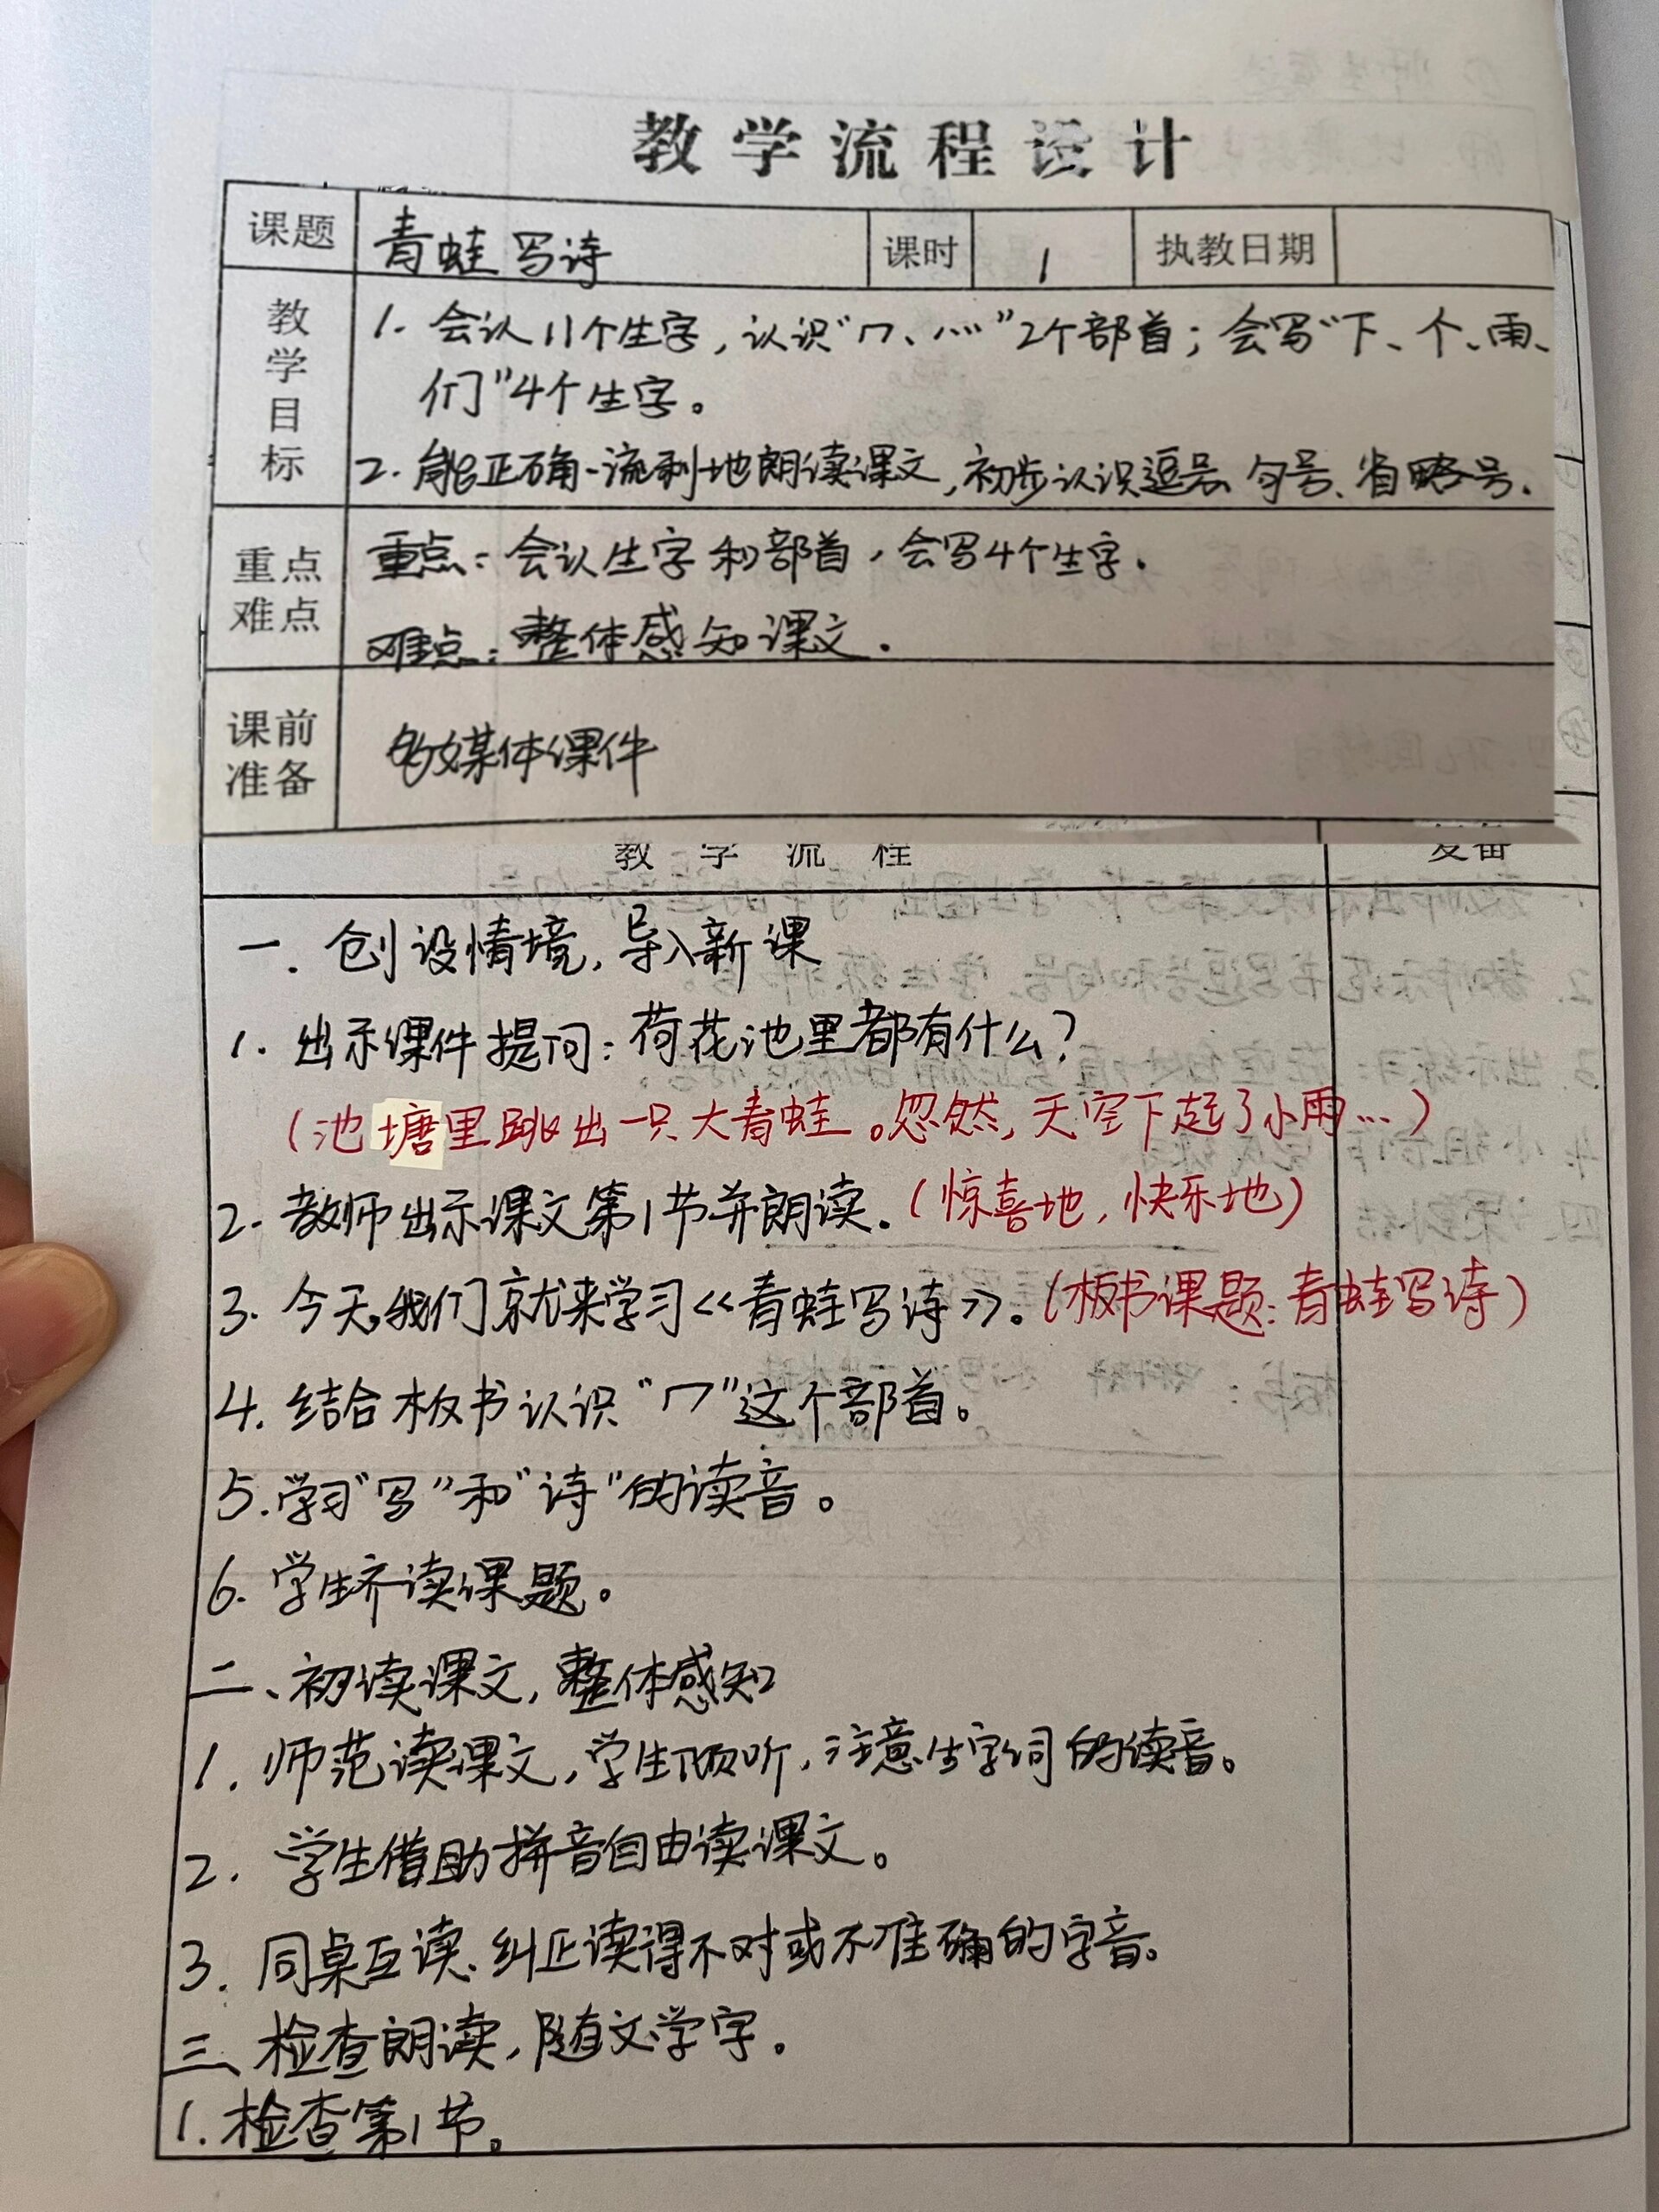 教学流程设计
课题 青蛙写诗 课时 1 执教日期
教学目标
1. 会认11个生字，认识“冖、灬”2个部首；会写“下、个、雨、
们”4个生字。
2. 能正确、流利地朗读课文，初步认识逗号、句号、省略号.
重点难点
重点：会认生字和部首，会写4个生字.
难点：整体感知课文.
课前准备
多媒体课件
教学流程 复备
一. 创设情境，导入新课
1. 出示课件提问：荷花池里都有什么？
（池塘里跳出一只大青蛙。忽然，天空下起了小雨…）
2. 教师出示课文第1节并朗读.（惊喜地，快乐地）
3. 今天，我们就来学习《青蛙写诗》。（板书课题：青蛙写诗）
4. 结合板书认识“冖”这个部首。
5. 学习“写”和“诗”的读音。
6. 学生齐读课题。
二、初读课文，整体感知
1. 师范读课文，学生倾听，注意生字词的读音。
2. 学生借助拼音自由读课文。
3. 同桌互读、纠正读得不对或不准确的字音。
三、检查朗读，随文学字.
1. 检查第1节。